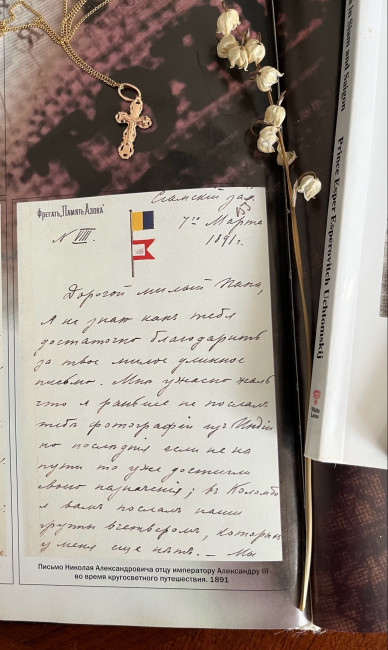 Фрегатъ „Память Азова“
Сіамскій зал.
N VIII.
7го Марта
1891 г.
Дорогой милый Папа,
Я не знаю какъ тебя
достаточно благодарить
за твое милое длинное
письмо. Мнѣ ужасно жаль
что я раньше не послалъ
тебѣ фотографій изъ Индіи
но послѣднія если не на
пути то уже достигли
своего назначенія; въ Коломбо
я вамъ послалъ наши
группы вчетверомъ, которыхъ
у меня еще нѣтъ. — Мы
Письмо Николая Александровича отцу императору Александру III
во время кругосветного путешествия. 1891
in Siam and Saigon
Prince Esper Esperovitch Uchtomskij
White
Lotus